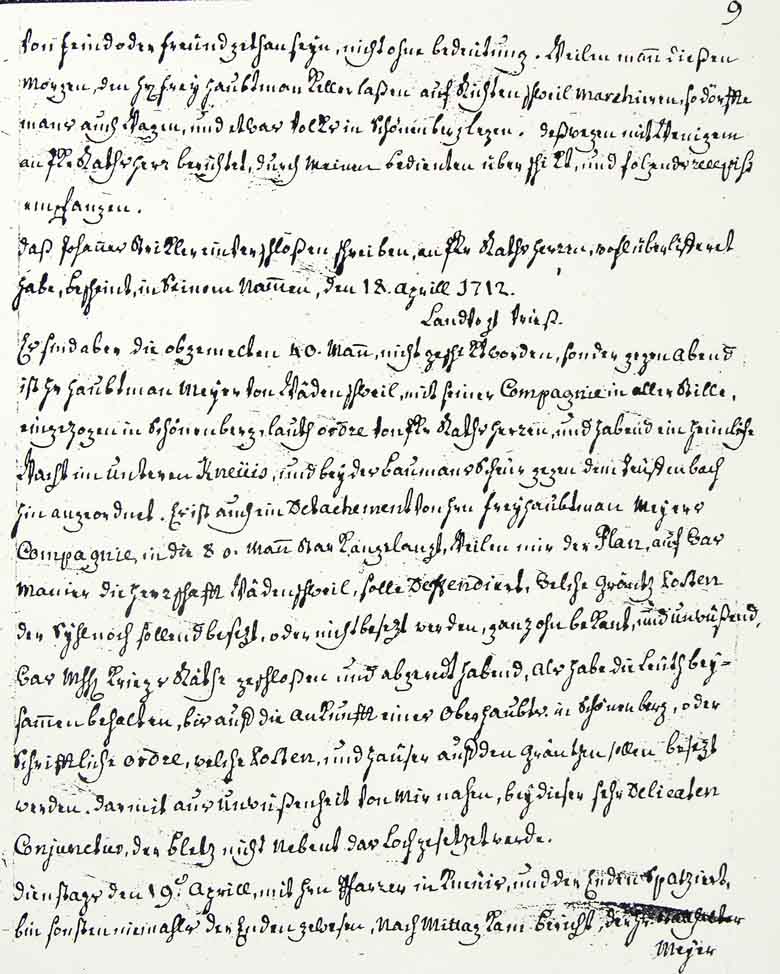 9
Von feind oder freünd gethan seyn, nicht ohne bedeütung. Weilen mañ dießen
Morgen, den Hr frey Haubtman Keller laßen auf Richtenschweil Marchieren, so dörffte
mans auch Wagen, und etwas Volks in Schönenberg legen. deßwegen mit Wenigem
an Jkr Rathsherr berichtet, durch Meinen bedienten überschikt, und folgends recepiss
empfangen.
daß Johañes Strikler ein verschloßen schreiben, an Jkr Rathsherren, wohl überlifferet
habe, bescheint, in Seinem Nam̄en, den 18. Aprill 1712.
Landvogt
Es sind aber die obgemelten 40. Mañ, nicht geschikt worden, sonder gegen Abend
ist Hr Haubtman Meyer von Wädenschweil, mit seiner Compagnie in aller Stille,
eingezogen in Schönenberg, lauth ordre von Jkr Rathsherren, und habend ein heimliche
Wacht im Unteren Kneüis, und bey des Baumans Scheür gegen dem
hin angeordnet. Es ist auch ein Detachement von Hrn freyhaubtman Meyers
Compagnie, in die 80. Mañ Stark angelangt, Weilen mir der Plan, auf was
Manier die Herrschafft Wädenschweil, solle Deffendiert, Welche gräntz Posten
der Syhl noch sollend besetzt, oder nicht besetzt werden, gantz ohnbekant, und unwüßend,
Was MhH Kriegs Räthe geschloßen und abgeredt habend, als habe die Leüth bey-
sam̄en behalten, bis auf die Ankunfft eines Oberhaubts in Schönenberg, oder
Schrifftliche ordre, welche Posten, und häuser auf den gräntzen sollen besetzt
werden. darmit aus Unwüßenheit von Mir nahen, bey dieser sehr Delicaten
Conjunctur, der bletz nicht Nebent das Loch gesetzet werde.
dienstags den 19t Aprill, mit Hrn Pfarrer in Kneüis, und der Enden Spatziert,
bin sonsten niemahls der Enden gewesen, Nach Mittag kam bericht, der Hr Statthalter
Meyer